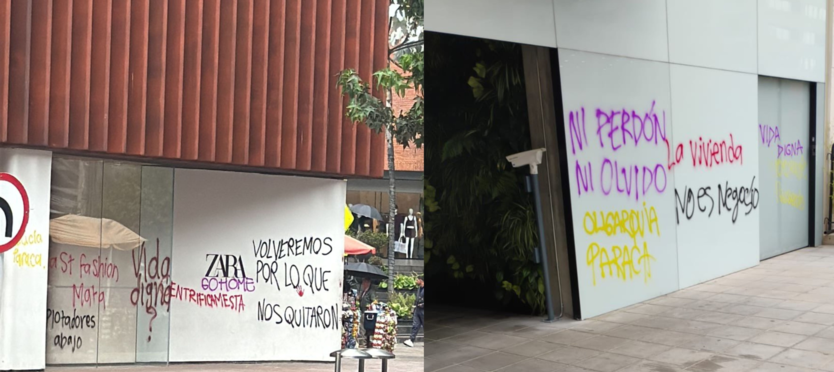 Paraca.
a St fashion
Mata
Plotadores
abajo
Vida
digna
?
ZARA
GO HOME
ENTRIFICAMESTA
VOLVEREMOS
POR LO QUE
NOS QUITARON
NI PERDÓN
NI OLVIDO
OLIGARQUIA
PARACA
La vivienda
NO ES NEGOCIO
VIDA
DIGNA